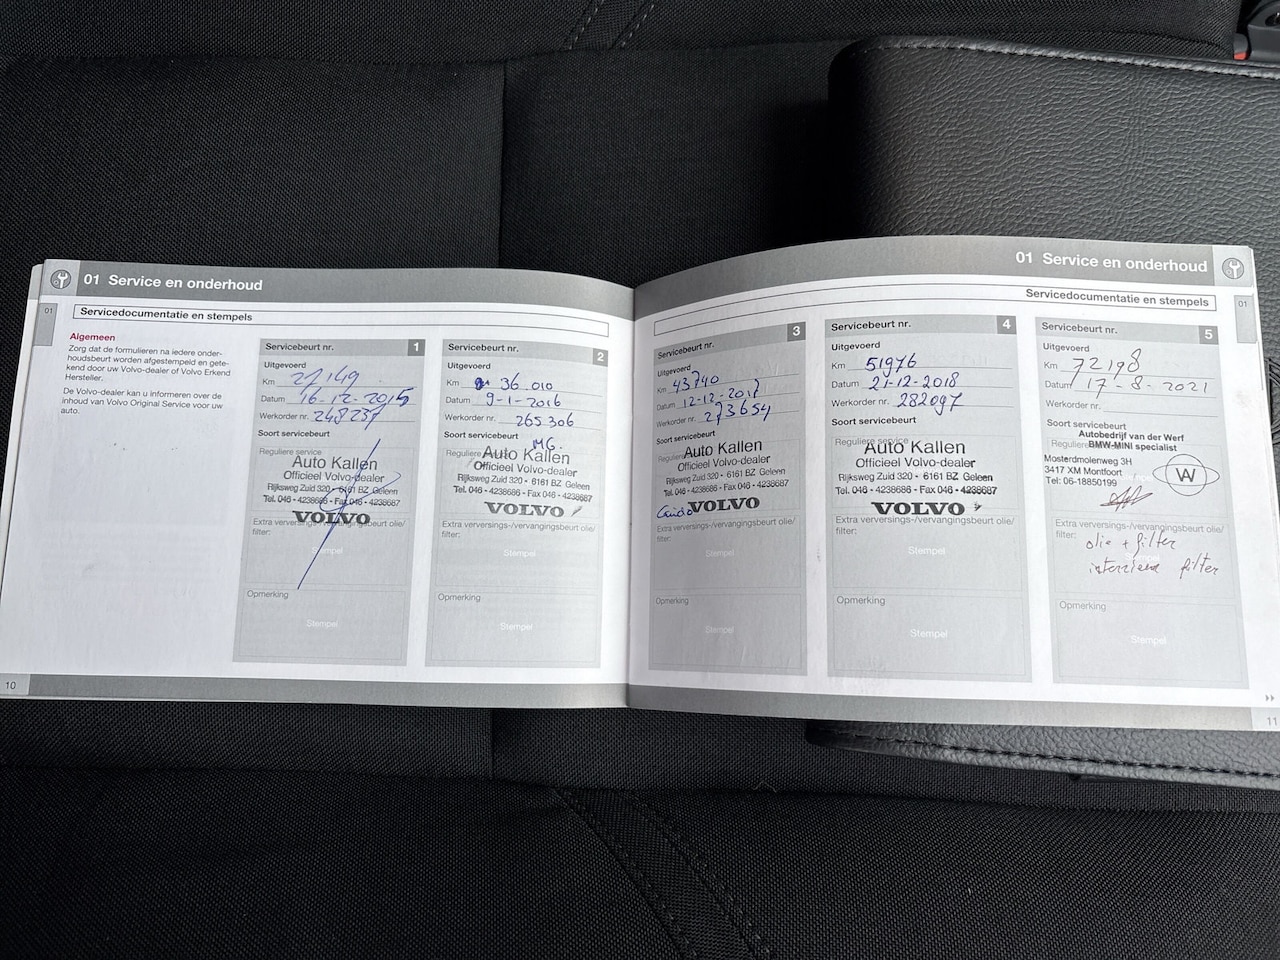 01 Service en onderhoud
01
Servicedocumentatie en stempels
Algemeen
Zorg dat de formulieren na iedere onder-
houdsbeurt worden afgestempeld en gete-
kend door uw Volvo-dealer of Volvo Erkend
Hersteller.
De Volvo-dealer kan u informeren over de
inhoud van Volvo Original Service voor uw
auto.
Servicebeurt nr. 1
Uitgevoerd
Km 27149
Datum 16-12-2015
Werkorder nr. 248237
Soort servicebeurt
Reguliere service
Auto Kallen
Officieel Volvo-dealer
Rijksweg Zuid 320 - 6161 BZ Geleen
Tel. 046 - 4238686 - Fax 046 - 4238687
VOLVO
Extra verversings-/vervangingsbeurt olie/
filter:
Stempel
Opmerking
Stempel
Servicebeurt nr. 2
Uitgevoerd
Km 36 010
Datum 9-1-2016
Werkorder nr. 265306
Soort servicebeurt
MG.
Auto Kallen
Officieel Volvo-dealer
Rijksweg Zuid 320 - 6161 BZ Geleen
Tel. 046 - 4238686 - Fax 046 - 4238687
VOLVO
Extra verversings-/vervangingsbeurt olie/
filter:
Stempel
Opmerking
Stempel
10
01 Service en onderhoud
01
Servicedocumentatie en stempels
Servicebeurt nr. 3
Uitgevoerd
Km 43740
Datum 12-12-2017
Werkorder nr. 273654
Soort servicebeurt
Auto Kallen
Officieel Volvo-dealer
Rijksweg Zuid 320 - 6161 BZ Geleen
Tel. 046 - 4238686 - Fax 046 - 4238687
Guido VOLVO
Extra verversings-/vervangingsbeurt olie/
filter:
Stempel
Opmerking
Stempel
Servicebeurt nr. 4
Uitgevoerd
Km 51976
Datum 21-12-2018
Werkorder nr. 282097
Soort servicebeurt
Reguliere service
Auto Kallen
Officieel Volvo-dealer
Rijksweg Zuid 320 - 6161 BZ Geleen
Tel. 046 - 4238686 - Fax 046 - 4238687
VOLVO
Extra verversings-/vervangingsbeurt olie/
filter:
Stempel
Opmerking
Stempel
Servicebeurt nr. 5
Uitgevoerd
Km 72198
Datum 17-8-2021
Werkorder nr.
Soort servicebeurt
Autobedrijf van der Werf
Reguliere BMW-MINI specialist
Mosterdmolenweg 3H
3417 XM Montfoort
Tel: 06-18850199
Extra verversings-/vervangingsbeurt olie/
filter:
olie + filter
interieur filter
Opmerking
Stempel
11